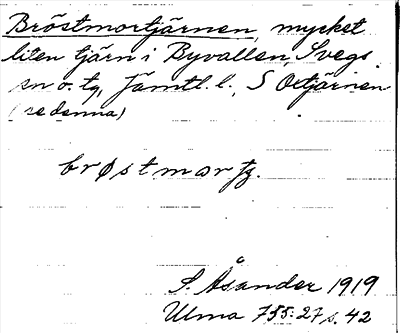 Bröstmortjärnen, mycket
liten tjärn i Byvallen, Svegs
sn o. tg, Jämtl. l., S Oxtjärnen
(se denna)
brøstmortj.
S. Åsander 1919
Ulma 755:27 s. 42